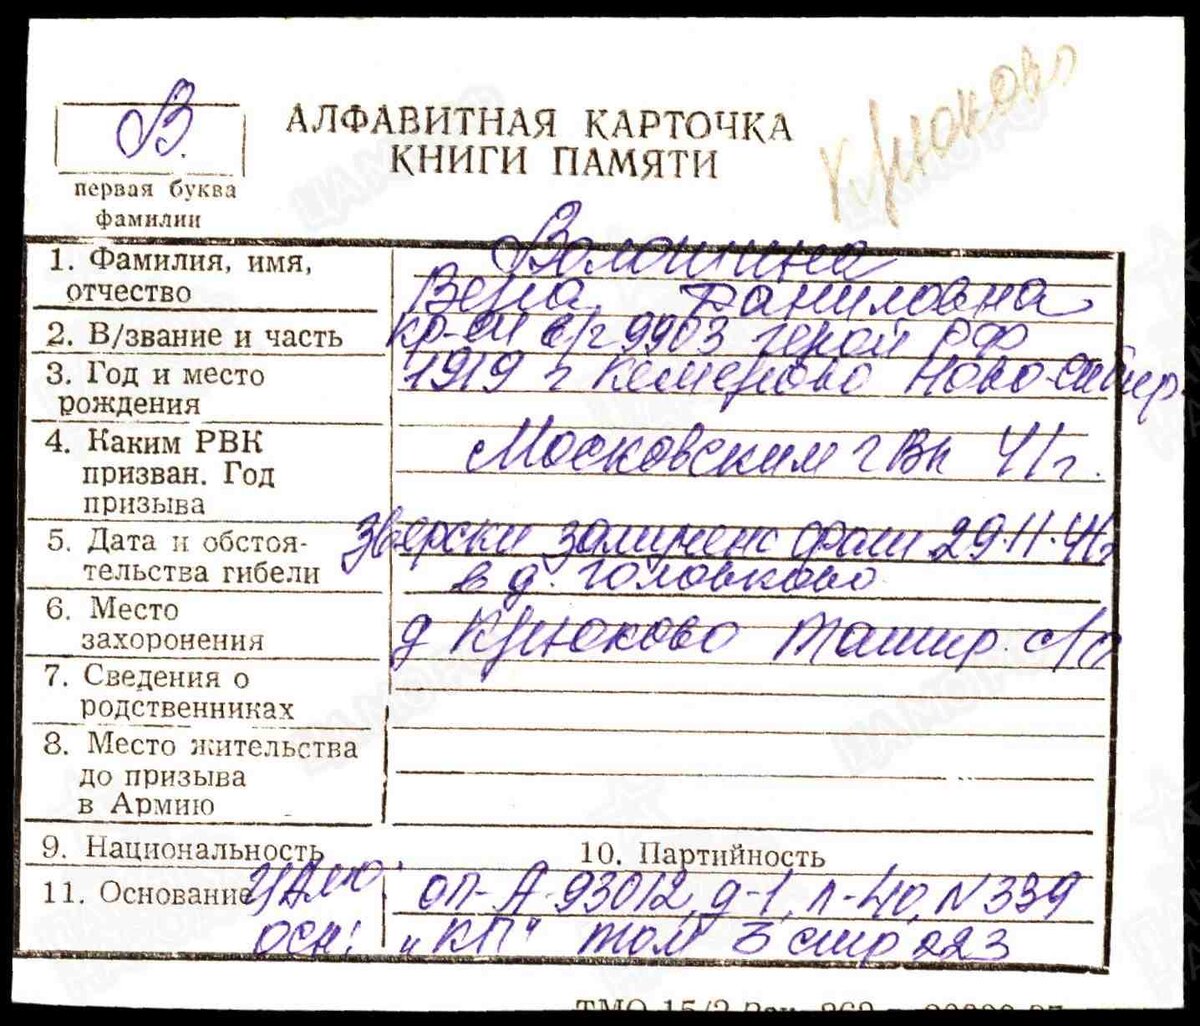 В.
первая буква
фамилии
АЛФАВИТНАЯ КАРТОЧКА
КНИГИ ПАМЯТИ
Крюково
1. Фамилия, имя,
отчество
Волошина
Вера Даниловна
2. В/звание и часть
кр-ец в/ч 9903 герой РФ
3. Год и место
рождения
1919 г Кемерово Ново-сибир.
4. Каким РВК
призван. Год
призыва
Московским ГВк 41г.
5. Дата и обстоя-
тельства гибели
Зверски замучена фаш 29.11.41г
в д. Головково
6. Место
захоронения
д Крюково Ташир. с/с
7. Сведения о
родственниках
8. Место жительства
до призыва
в Армию
9. Национальность
10. Партийность
11. Основание
ЦАМО. оп-А-93012, д-1, л-40, N339
осн: „КП" том 3 стр 223